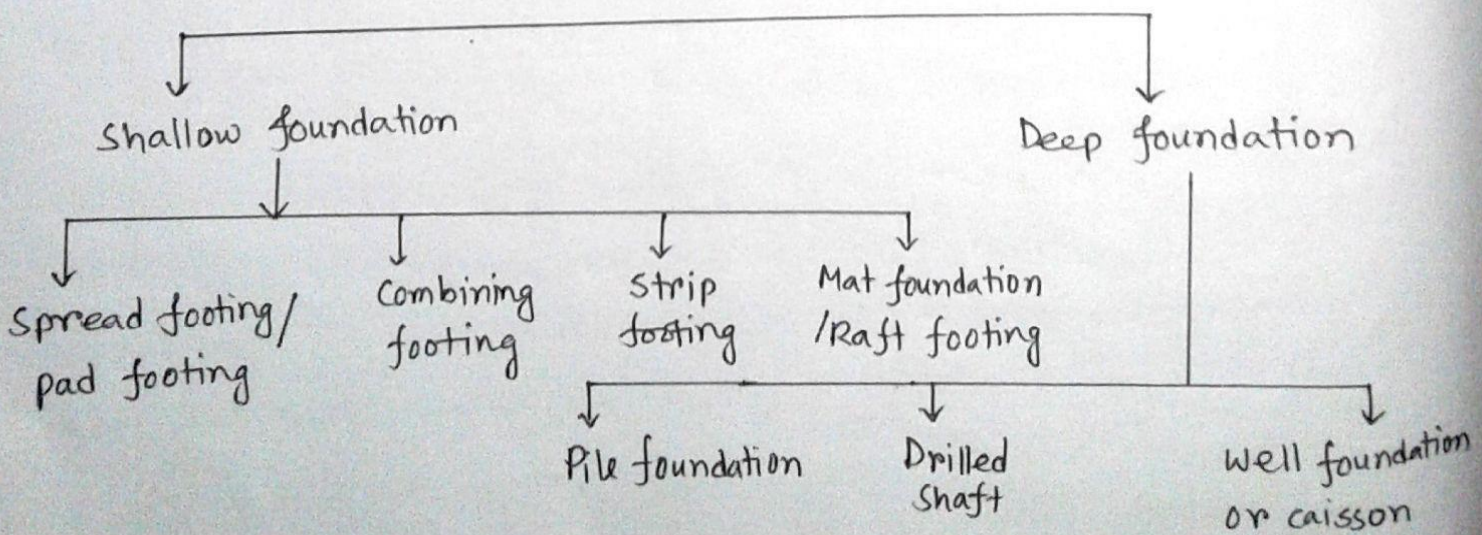 Shallow foundation
Deep foundation
Spread footing/
pad footing
Combining
footing
Strip
footing
Mat foundation
/Raft footing
Pile foundation
Drilled
Shaft
Well foundation
or caisson